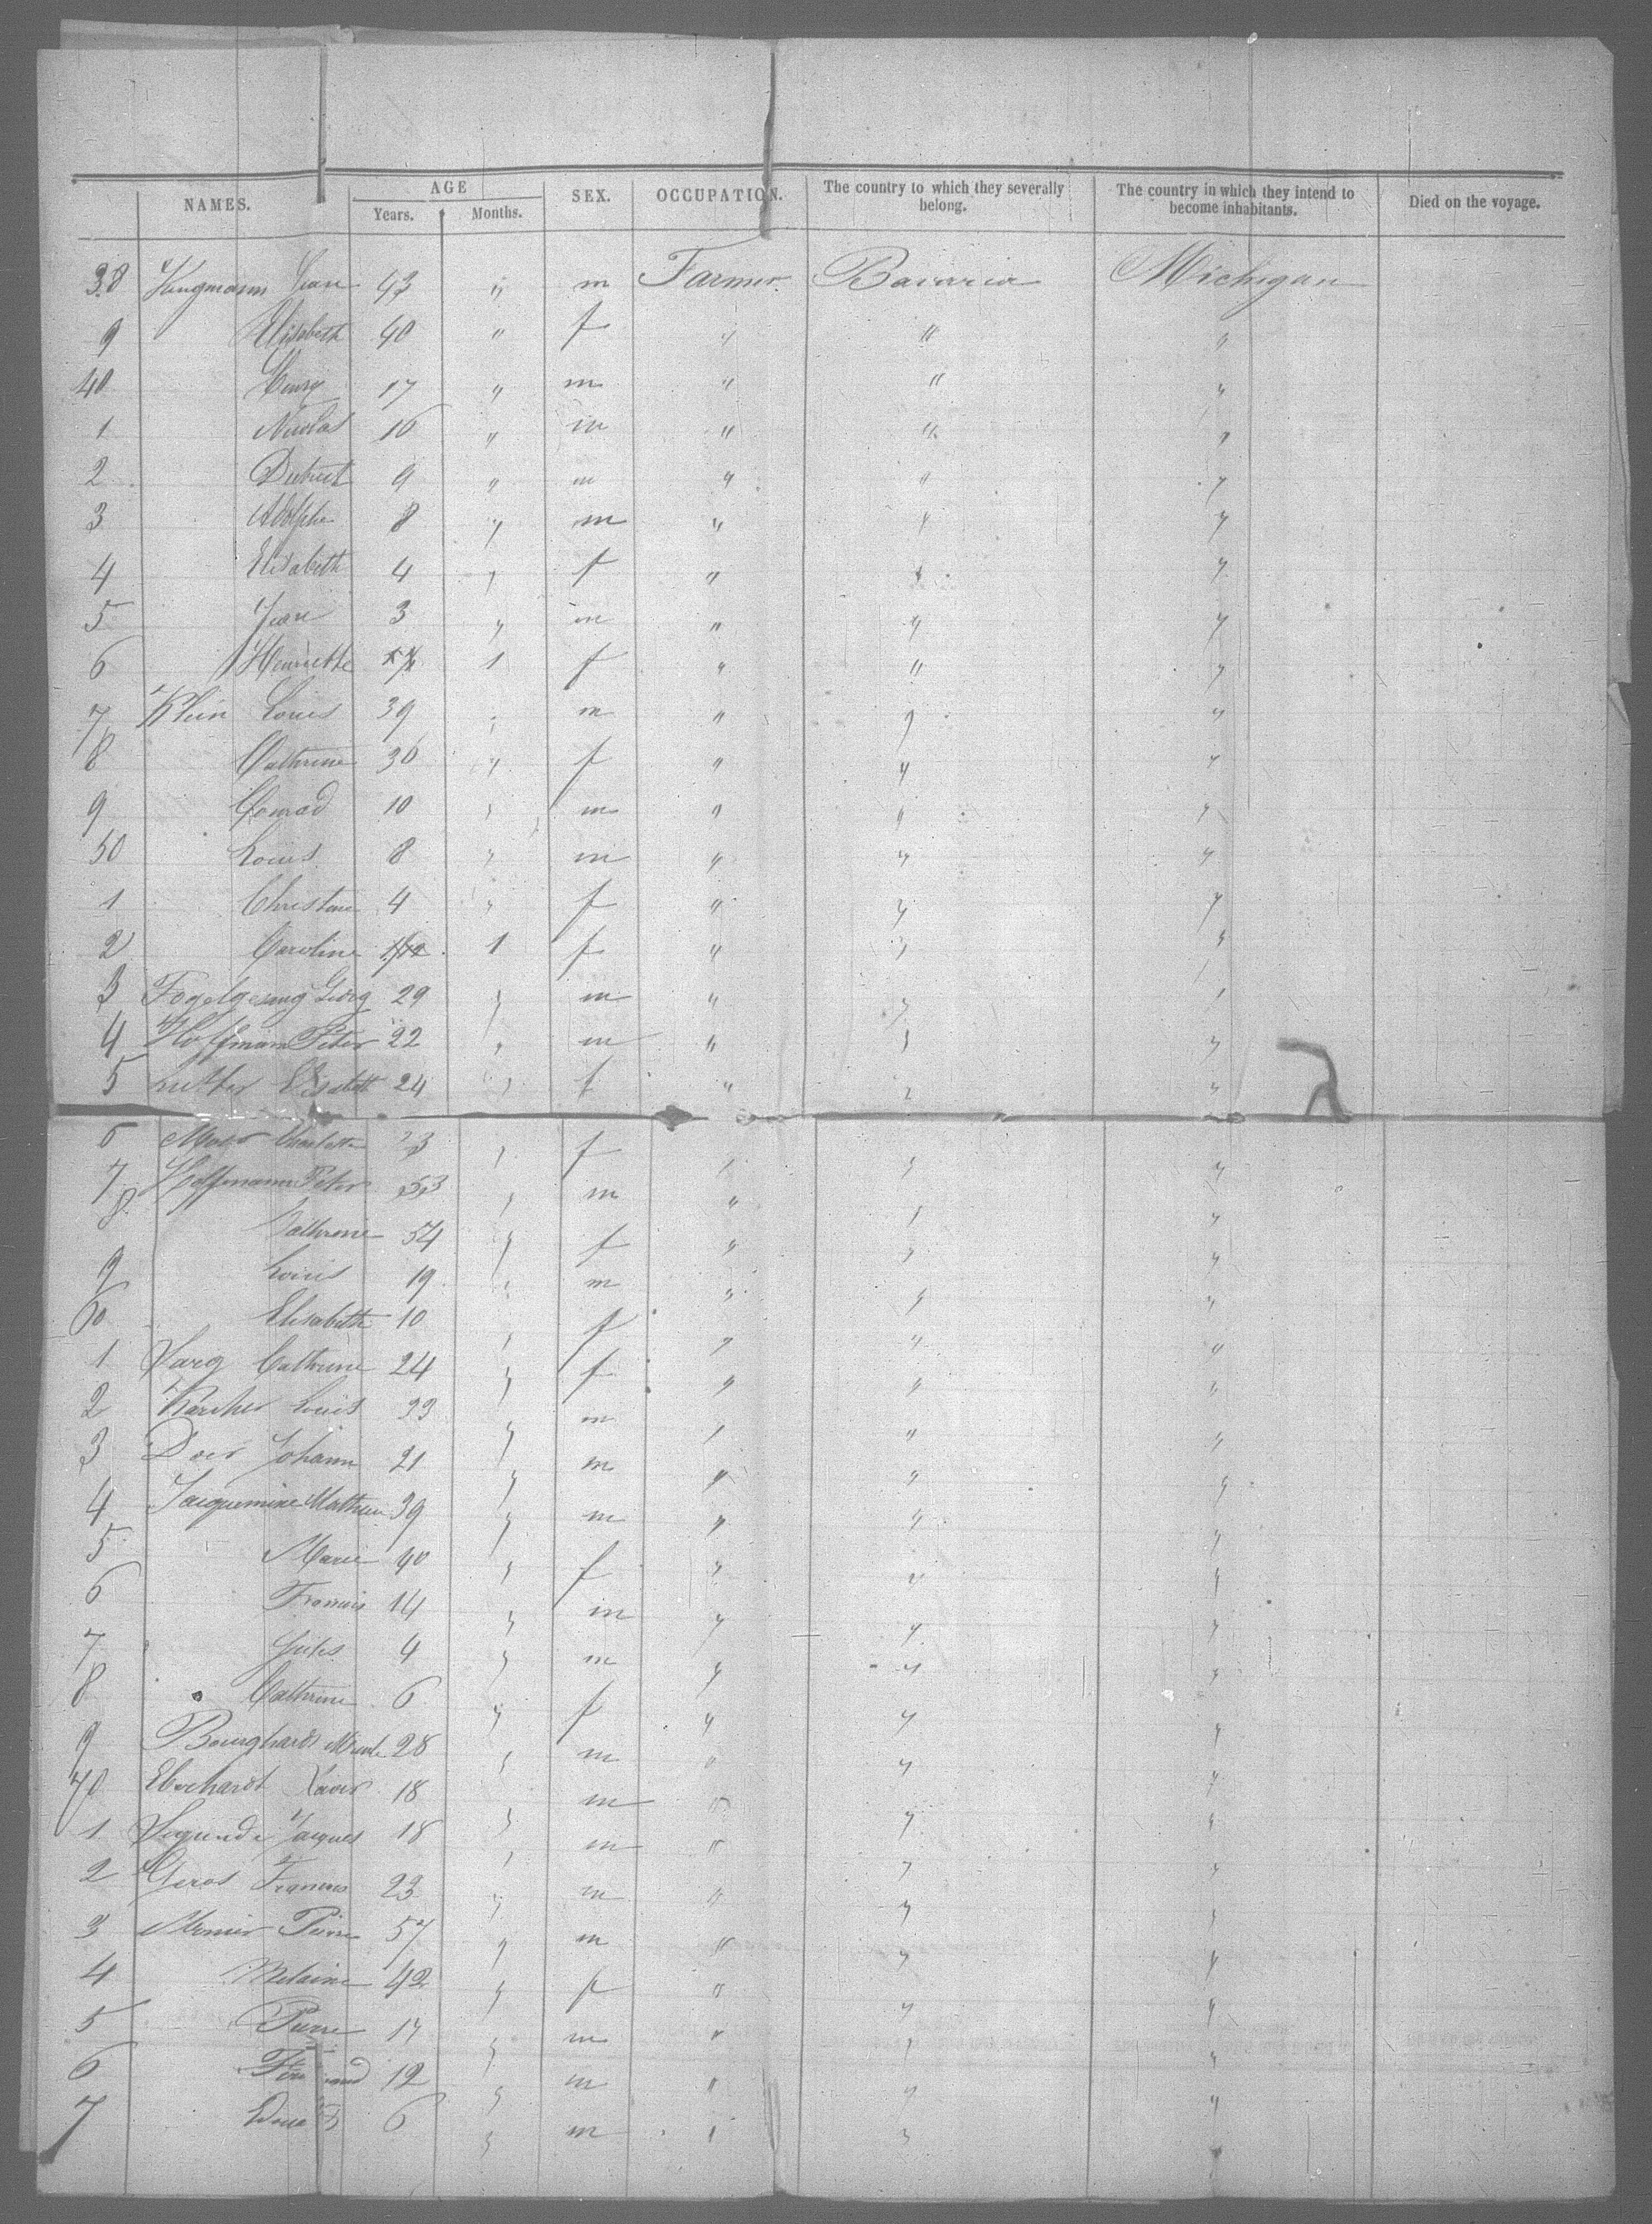 NAMES. AGE SEX. OCCUPATION. The country to which they severally belong. The country in which they intend to become inhabitants. Died on the voyage.
Years. Months.
38 Jean 43 " m Farmer Bavaria Michigan
9 Elisabeth 40 " f " " "
40 17 " m " " "
1 Nicolas 16 " m " " "
2 9 " m " " "
3 Adolphe 8 " m " " "
4 Elisabeth 4 " f " " "
5 Jean 3 " m " " "
6 Henriette 1 f " " "
7 Klein Louis 39 " m " " "
8 Cathrine 36 " f " " "
9 Conrad 10 " m " " "
50 Louis 8 " m " " "
1 Christine 4 " f " " "
2 Caroline 1/12 1 f " " "
3 Fogelgesang Georg 29 " m " " "
4 Hoffmann Peter 22 " m " " "
5 Luther Elisabeth 24 " f " " "
6 23 " f " " "
7 Hoffmann Peter 53 " m " " "
8 Cathrine 54 " f " " "
9 Louis 19 " m " " "
60 Elisabeth 10 " f " " "
1 Cathrine 24 " f " " "
2 Karcher Louis 33 " m " " "
3 Doer Johann 21 " m " " "
4 Jacquemine Mathieu 39 " m " " "
5 Marie 40 " f " " "
6 Francois 14 " m " " "
7 Jules 4 " m " " "
8 Cathrine 6 " f " " "
9 28 " m " " "
70 Eberhardt Xavier 18 " m " " "
1 Jacques 18 " m " " "
2 Francois 23 " m " " "
3 Pierre 57 " m " " "
4 Melaine 42 " f " " "
5 Pierre 17 " m " " "
6 12 " m " " "
7 6 " m " " "